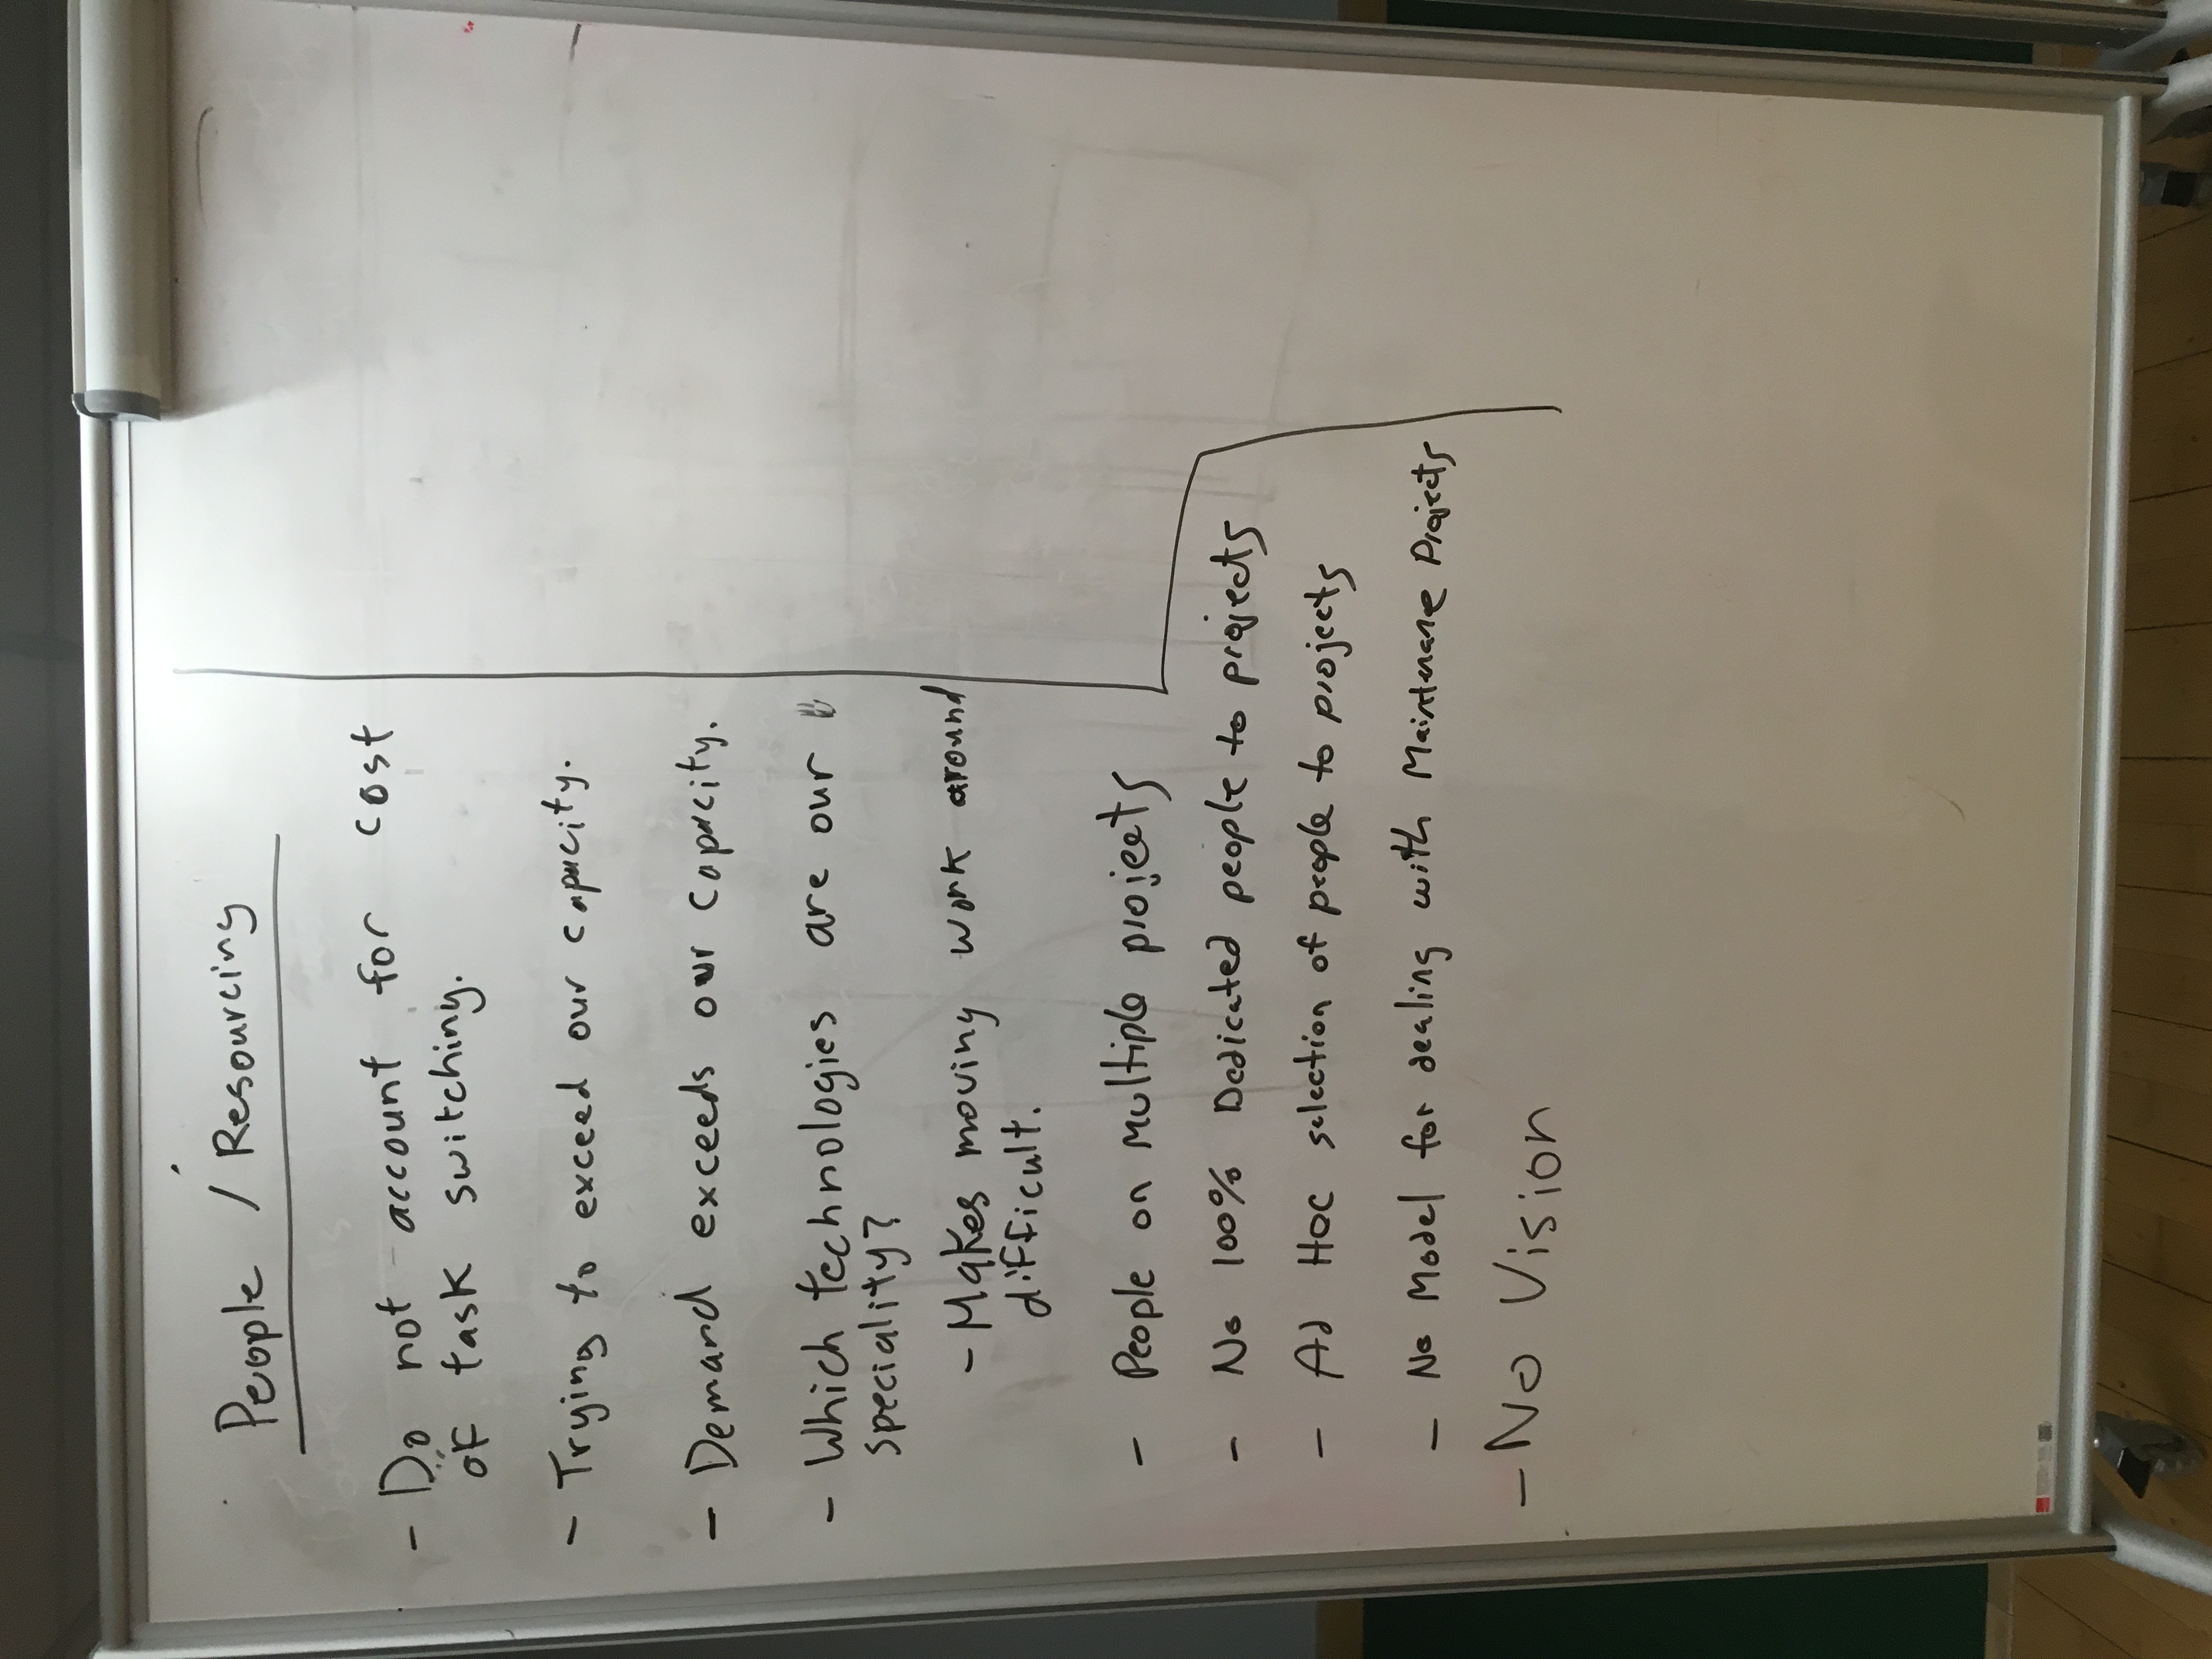 People / Resourcing
- Do not account for cost
of task switching.
- Trying to exceed our capacity.
- Demand exceeds our capacity.
- Which technologies are our
speciality?
- Makes moving work around
difficult.
- People on Multiple projects
- No 100% Dedicated people to projects
- Ad Hoc selection of people to projects
- No Model for dealing with Maintenance Projects
- No Vision